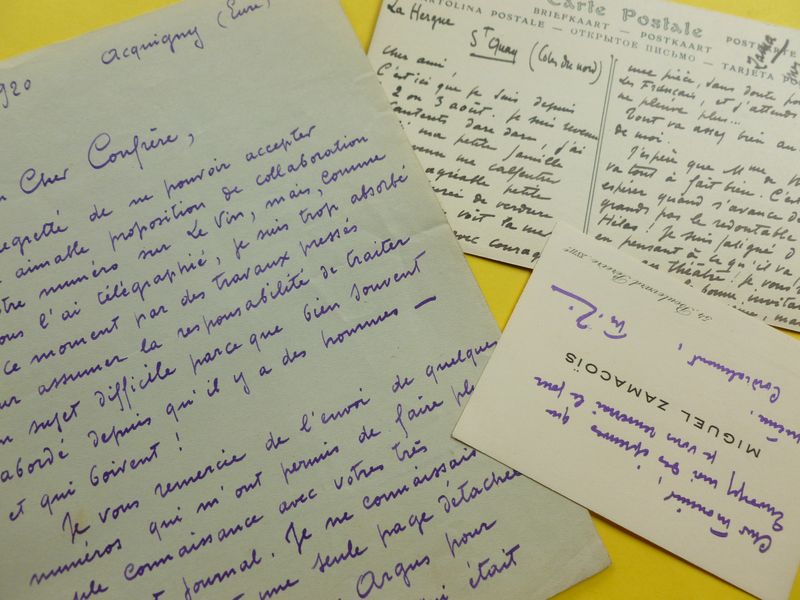 Acquigny (Eure)
920
Cher Confrère,
regretté de ne pouvoir accepter
aimable proposition de collaboration
tre numéro sur Le Vin, mais, comme
vous l'ai télégraphié, je suis trop absorbé
ce moment par des travaux pressés
ur assumer la responsabilité de traiter
n sujet difficile parce que bien souvent
abordé depuis qu'il y a des hommes —
et qui boivent !
Je vous remercie de l'envoi de quelques
numéros qui m'ont permis de faire pl
ple connaissance avec votre très
t journal. Je ne connaissais
une seule page détachée
Argus pour
i était
Carte Postale
CARTOLINA POSTALE - BRIEFKAART - POSTKAART
ОТКРЫТОЕ ПИСЬМО - TARJETA PO
La Hergue
St Quay (Côtes du nord)
Cher ami,
C'est ici que je suis depuis
2 ou 3 août. Je suis revenu
dare dare, j'ai
ma petite famille
venu me calfeutrer
agréable petite
de verdure
voit la me
avec courag
une pièce, sans doute pou
les Français, et j'attends
ne pleuve plus...
Tout va assez bien au
de moi.
J'espère que Mme de
va tout à fait bien. C'es
espérer quand s'avance d
grands pas le redoutable
Hélas ! Je suis
en pensant à ce qu'il va
au théâtre ! Je vous
bonne, invitat
34, Boulevard
MIGUEL ZAMACOÏS
Cher Monsieur,
Envoyez moi les épreuves que
je vous renverrai le jour
Cordialement,